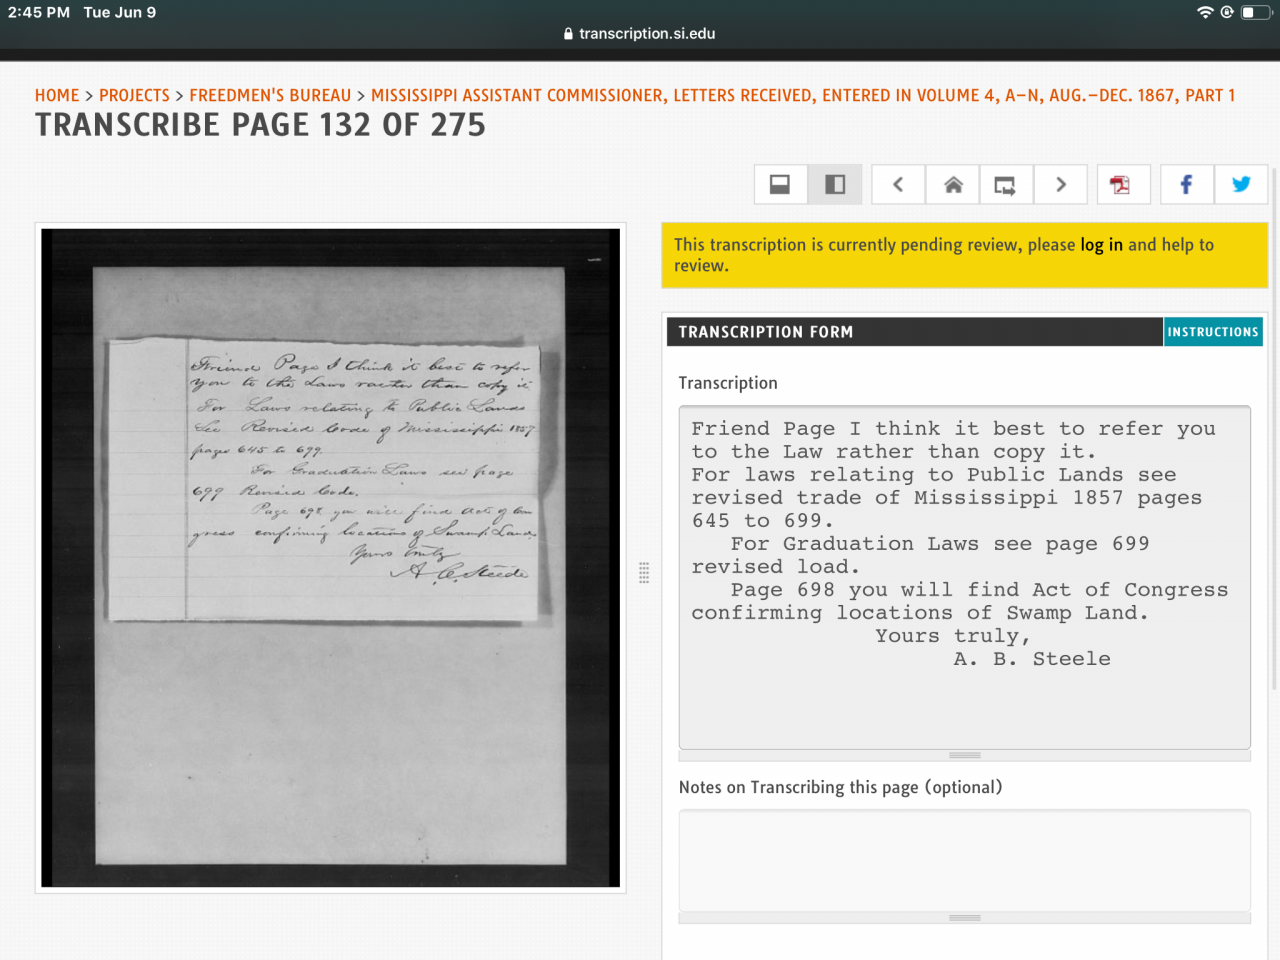 2:45 PM Tue Jun 9
transcription.si.edu
HOME > PROJECTS > FREEDMEN'S BUREAU > MISSISSIPPI ASSISTANT COMMISSIONER, LETTERS RECEIVED, ENTERED IN VOLUME 4, A–N, AUG.–DEC. 1867, PART 1
TRANSCRIBE PAGE 132 OF 275
Friend Page I think it best to refer
you to the Laws rather than copy it
For Laws relating to Public Lands
See Revised Code of Mississippi 1857
pages 645 to 699
For Graduation Laws see page
699 Revised Code.
Page 698 you will find Act of Con
gress confirming locations of Swamp Lands
Yours truly
A. C. Steede
This transcription is currently pending review, please log in and help to
review.
TRANSCRIPTION FORM
INSTRUCTIONS
Transcription
Friend Page I think it best to refer you
to the Law rather than copy it.
For laws relating to Public Lands see
revised trade of Mississippi 1857 pages
645 to 699.
For Graduation Laws see page 699
revised load.
Page 698 you will find Act of Congress
confirming locations of Swamp Land.
Yours truly,
A. B. Steele
Notes on Transcribing this page (optional)